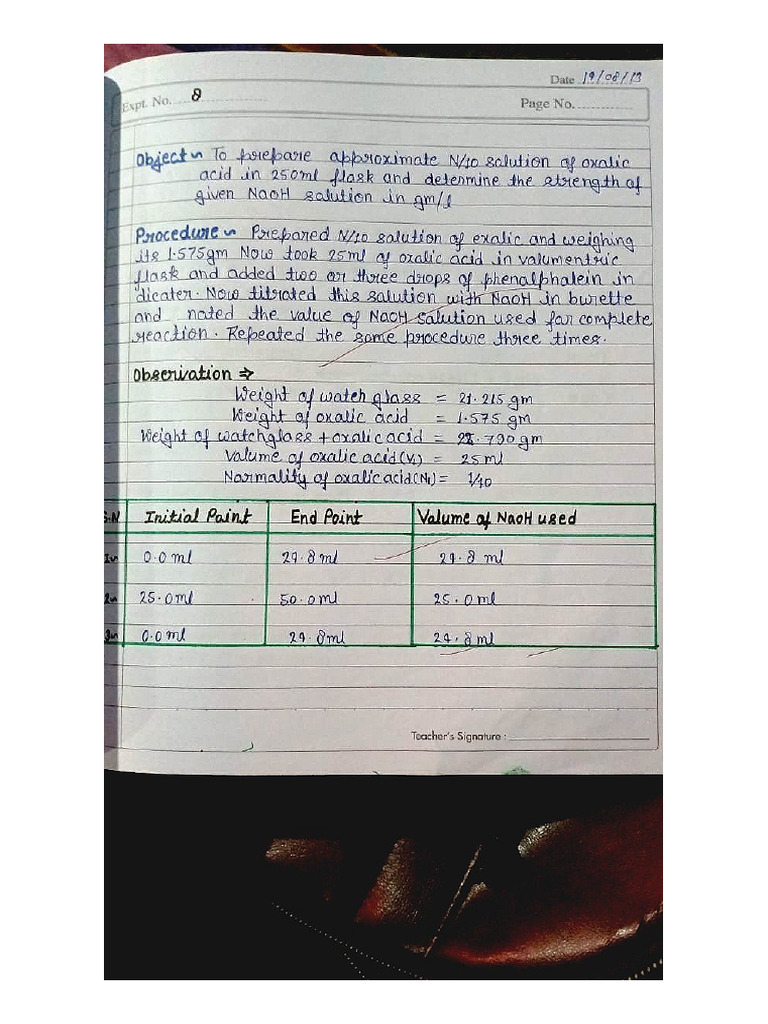 Date 19/08/13
Expt. No. 8
Page No.
Object~ To prepare approximate N/10 solution of oxalic
acid in 250ml flask and determine the strength of
given NaOH solution in gm/l
Procedure~ Prepared N/10 solution of exalic and weighing
its 1.575gm Now took 25ml of oxalic acid in valumentric
flask and added two or three drops of phenalphalein in
dicater. Now titrated this salution with NaOH in burette
and nated the value of NaOH salution used far complete
reaction. Repeated the same procedure three times.
Observation ⇒
Weight of watch glass = 21.215 gm
Weight of oxalic acid = 1.575 gm
Weight of watchglass + oxalic acid = 22.790 gm
Valume of oxalic acid (V₁) = 25 ml
Narmality of oxalic acid (N₁) = 1/10
S.N Initial Paint End Paint Valume of NaOH used
1~ 0.0 ml 24.8 ml 24.8 ml
2~ 25.0 ml 50.0 ml 25.0 ml
3~ 0.0 ml 24.8 ml 24.8 ml
Teacher's Signature :